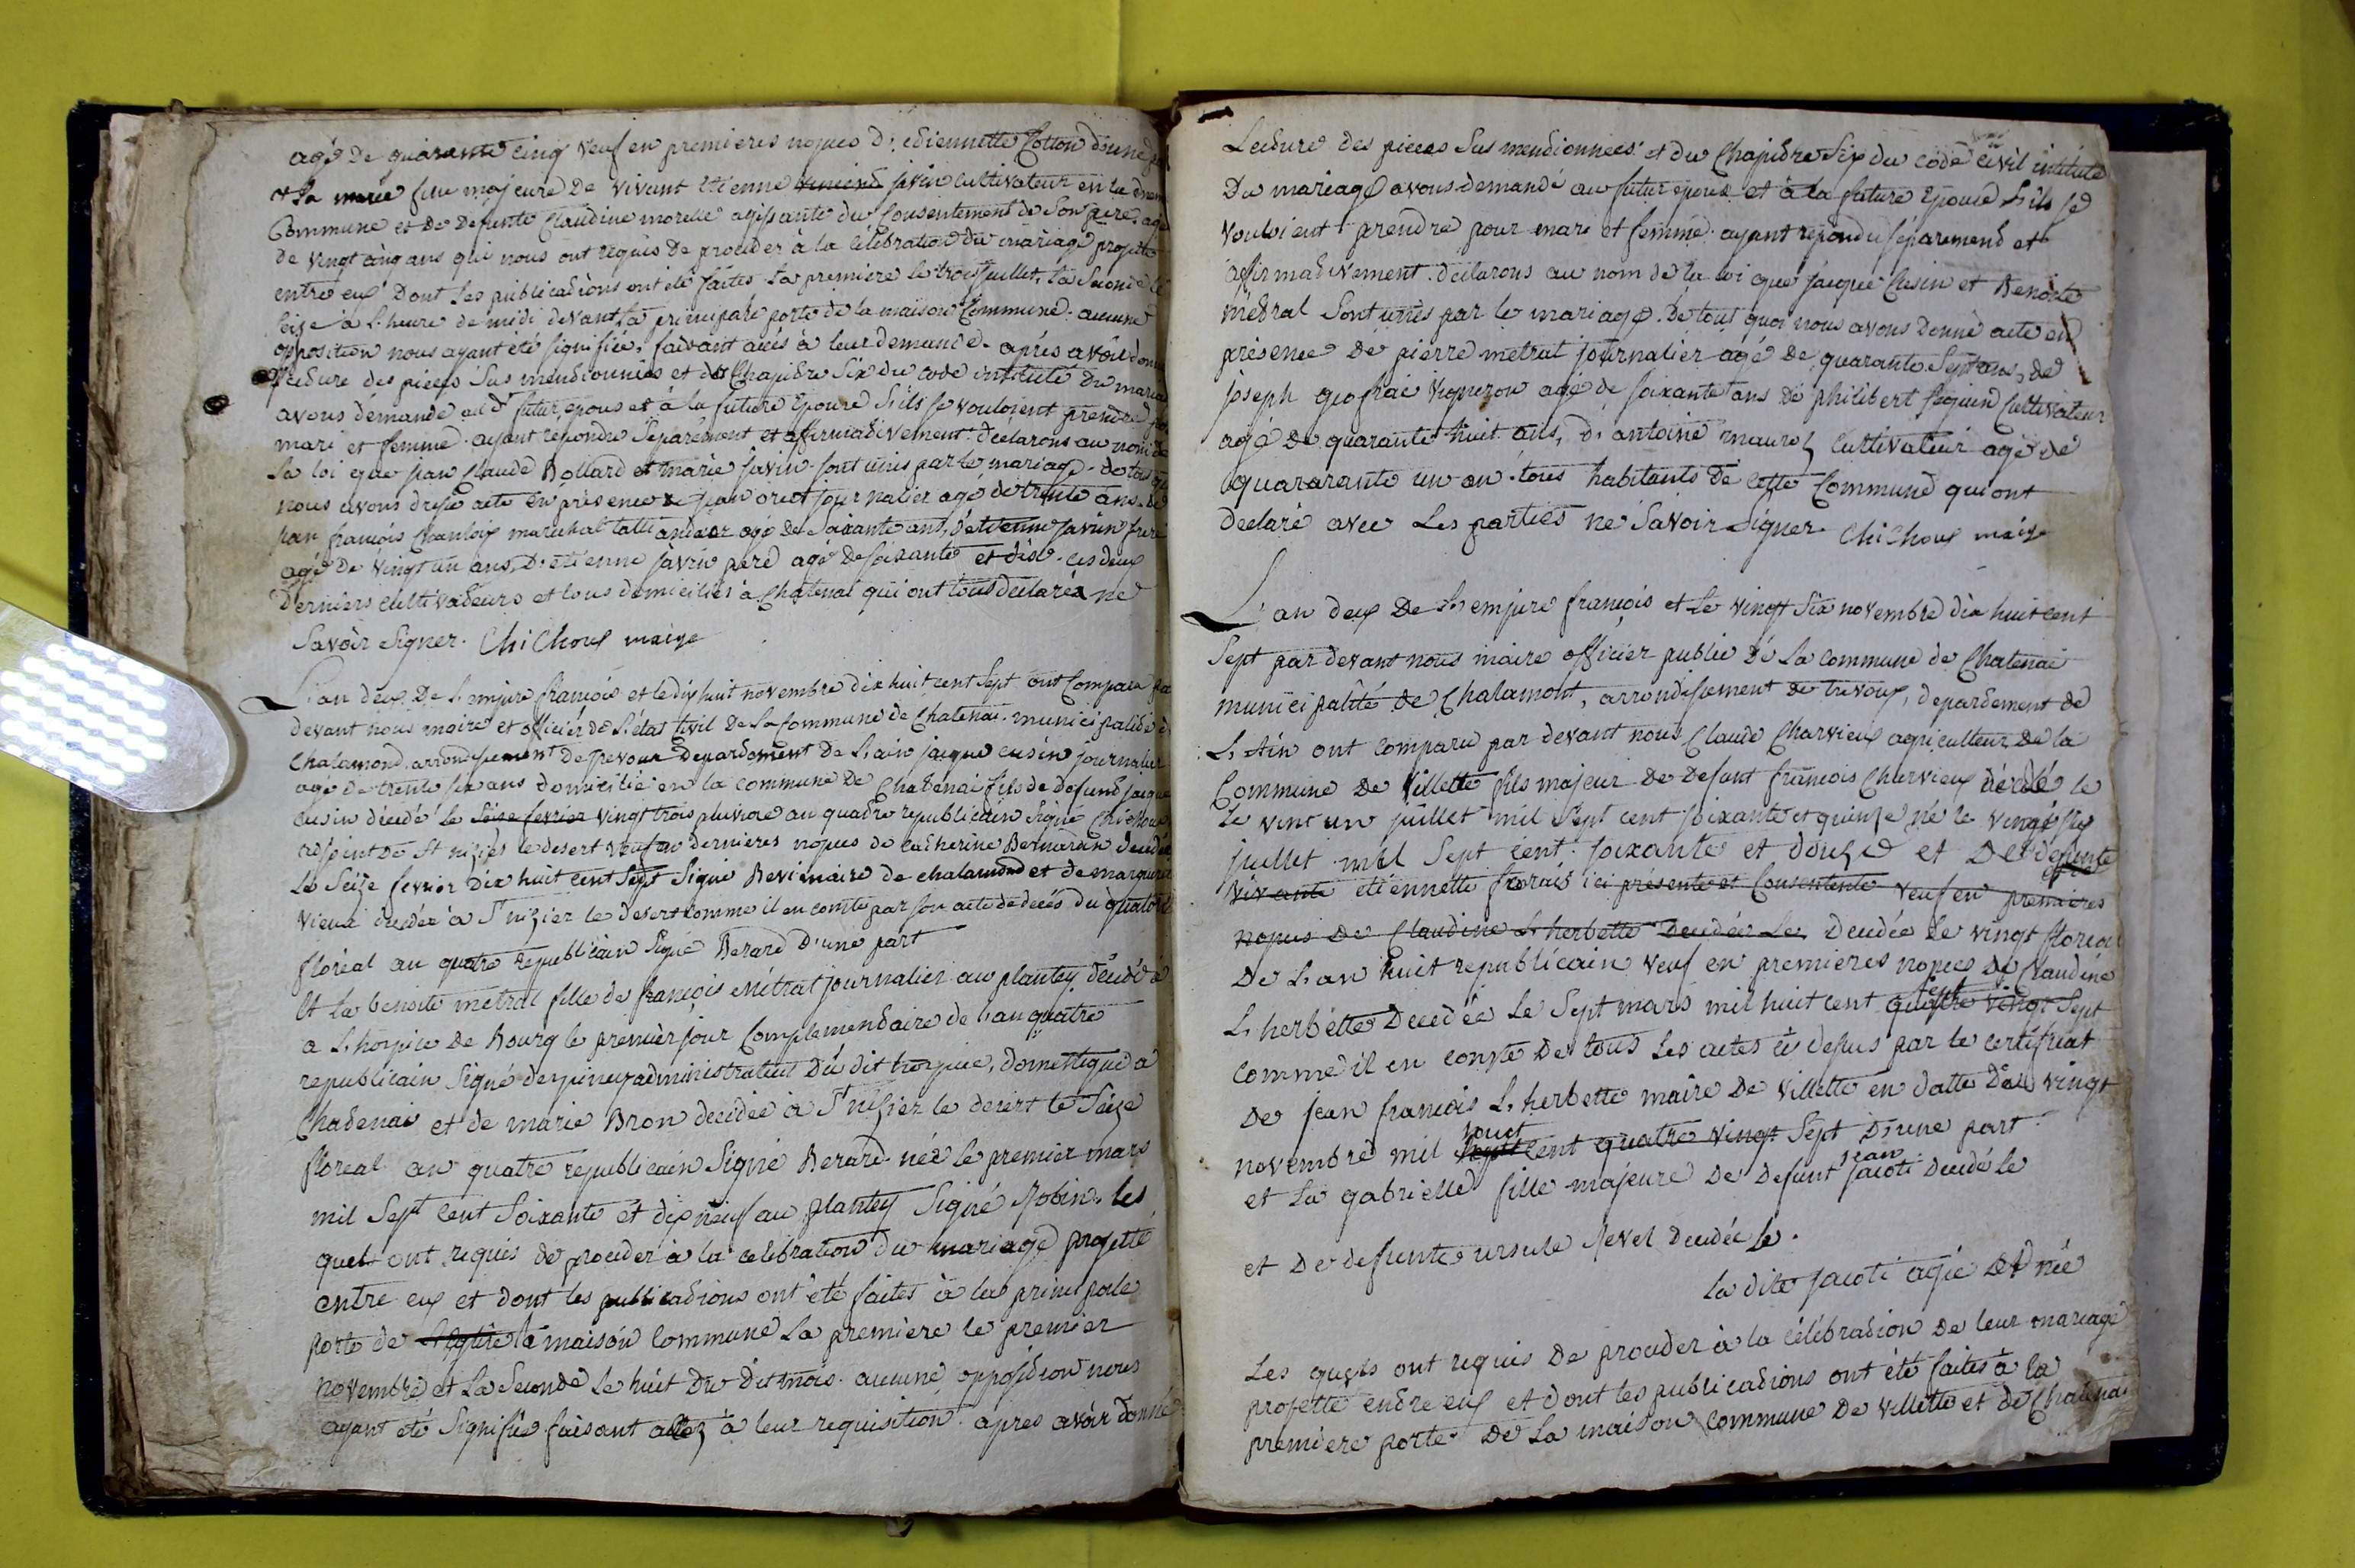 agé de quarante cinq veuf en premieres nopces d'. ediennette Cotton d'une
et La marie fille majeure de vivant Etienne savin cultivateur en la
Commune et de defunte Claudine morelle agissante du Consentement de son pere agé
de vingt cinq ans qui nous ont requis de proceder à la célébration du mariage projetté
entre eux dont les publicadions ont été faites la premiere le trois juillet, la seconde le
seize à l'heure de midi devant la principale porte de la maison Commune. aucune
opposition nous ayant été signifiée, faisant à leur demande. après avoir donné
Lecdure des pieces sus mendionnées et du Chapidre Six du code intitulé Du mariage
avons demandé au dt futur epoux et à la future Epouse s'ils se vouloient prendre
mari et femme. ayant repondu séparement et affirmadivement. déclarons au nom de
la loi que jean Claude Bollard et marie savin sont unis par le mariage. de tout
nous avons dressé acte en présence de jean journalier agé de trente ans. de
jean françois marechal agé de soixante ans, d'etienne savin frere
agé de vingt un ans, d'etienne savin pere agé de soixante et dix. ces deux
derniers cultivadeurs et tous domiciliés à Chatenai qui ont tous declarés ne
savoir signer. Chichoux maire
L'an deux de l'empire françois et le dix huit novembre dix huit cent sept ont Comparu par
devant nous maire et officier de l'état Civil de la Commune de Chatenai. municipalidé de
Chalamond, arrondissement de Trevoux Depardement de l'ain jacque cusin journalier
agé de trente six ans domicilié en la commune de Chatenai fils de defund jacque
cusin décédé le seize fevrier vingt trois pluviose an quadre republicain Signé Chichoux
adjoint de St nizier le desert veuf en dernieres nopces de Catherine Bernardin decedée
Le Seize fevrier dix huit cent sept Signé maire de chalamond et de marguerite
vieux decedée à St nizier le desert comme il en conste par son acte de decés du quatorze
floréal an quatre republicain signé Berard d'une part
Et La benoite metral fille de françois métrat journalier au plantey décédé à
a L'hospice de Bourg le premier jour Complemendaire de l'an quatre
republicain Signé despiney administrateur du dit hospice, domestique a
Chadenai et de marie Bron decedée à St nizier le desert le Seize
floréal an quatre republicain Signé Berard née le premier mars
mil Sept cent Soixante et dix neuf au plantey Signé Robin. les
quels ont requis de proceder à la celebration du mariage projetté
entre eux et dont les publicadions ont été faites à la principale
porte de l'eglise la maison Commune La premiere le premier
novembre et La Seconde le huit du dit mois. aucune opposidion nous
ayant été Signifiée faisant à leur requisition. apres avoir donné
Lecdure des pieces Sus mendionnées et du Chapidre Six du code civil intitulé
Du mariage avons demandé au futur epoux et à la future Epouse s'ils se
vouloient prendre pour mari et femme. ayant repondu séparemend et
affirmadivement. declarons au nom de la loi que jacque Cusin et Benoite
médral sont unis par le mariage. De tout quoi nous avons donné acte en
présence de pierre metrat journalier agé de quarante sept ans, de
joseph vigneron agé de soixante ans de philibert seguin cultivateur
agé de quarante huit ans, d'antoine maurel cultivateur agé de
quararante un an. tous habitants de cette Commune qui ont
declaré avec Les parties ne savoir signer. Chichoux maire
L'an deux de L'empire françois et Le vingt Six novembre dix huit cent
Sept par devant nous maire officier public de La commune de Chatenai
municipalité de Chalamont, arrondissement de trevoux, depardement de
L'Ain ont comparu par devant nous Claude Charvieux agriculteur de la
Commune de Villette fils majeur de defunt françois Charvieux décédé le
Le vint un juillet mil sept cent soixante et quinse né le vingt
juillet mil sept cent soixante et douze et De defunte
vivante etiennette ici présente et Consentente veuf en premieres
nopces De Claudine L'herbette Decedée Le Decedée le vingt floreal
De L'an huit republicain veuf en premieres nopces de Claudine
L'herbette Decedée Le sept mars mil huit cent quatre vingt sept
comme il en conste De tous Les actes ci dessus par le certificat
De jean françois L'herbette maire De villette en datte du vingt
novembre mil cent quatre vingt sept D'une part
et La gabrielle fille majeure De defunt jean jacoti decedé le
et De defunte ursule Revel Decedée le.
la dite jacoti agée et née
Les quels ont requis De proceder à la célébradion De leur mariage
projetté endre eux et dont les publicadions ont été faites à la
premiere porte De La maison Commune De villette et de Chatenai